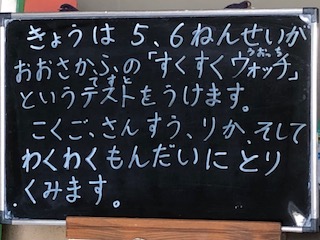 きょうは 5、6ねんせいが
おおさかふ、の「すくすくウォッチ」
うおっち
というテストをうけます。
てすと
こくご、さんすう、りか、そして
わくわくもんだいにとり
くみます。